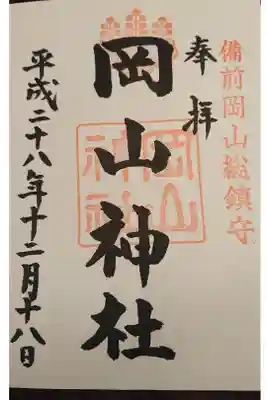 備前岡山総鎮守
奉拝
岡山神社
岡山神社
平成二十八年十二月十八日